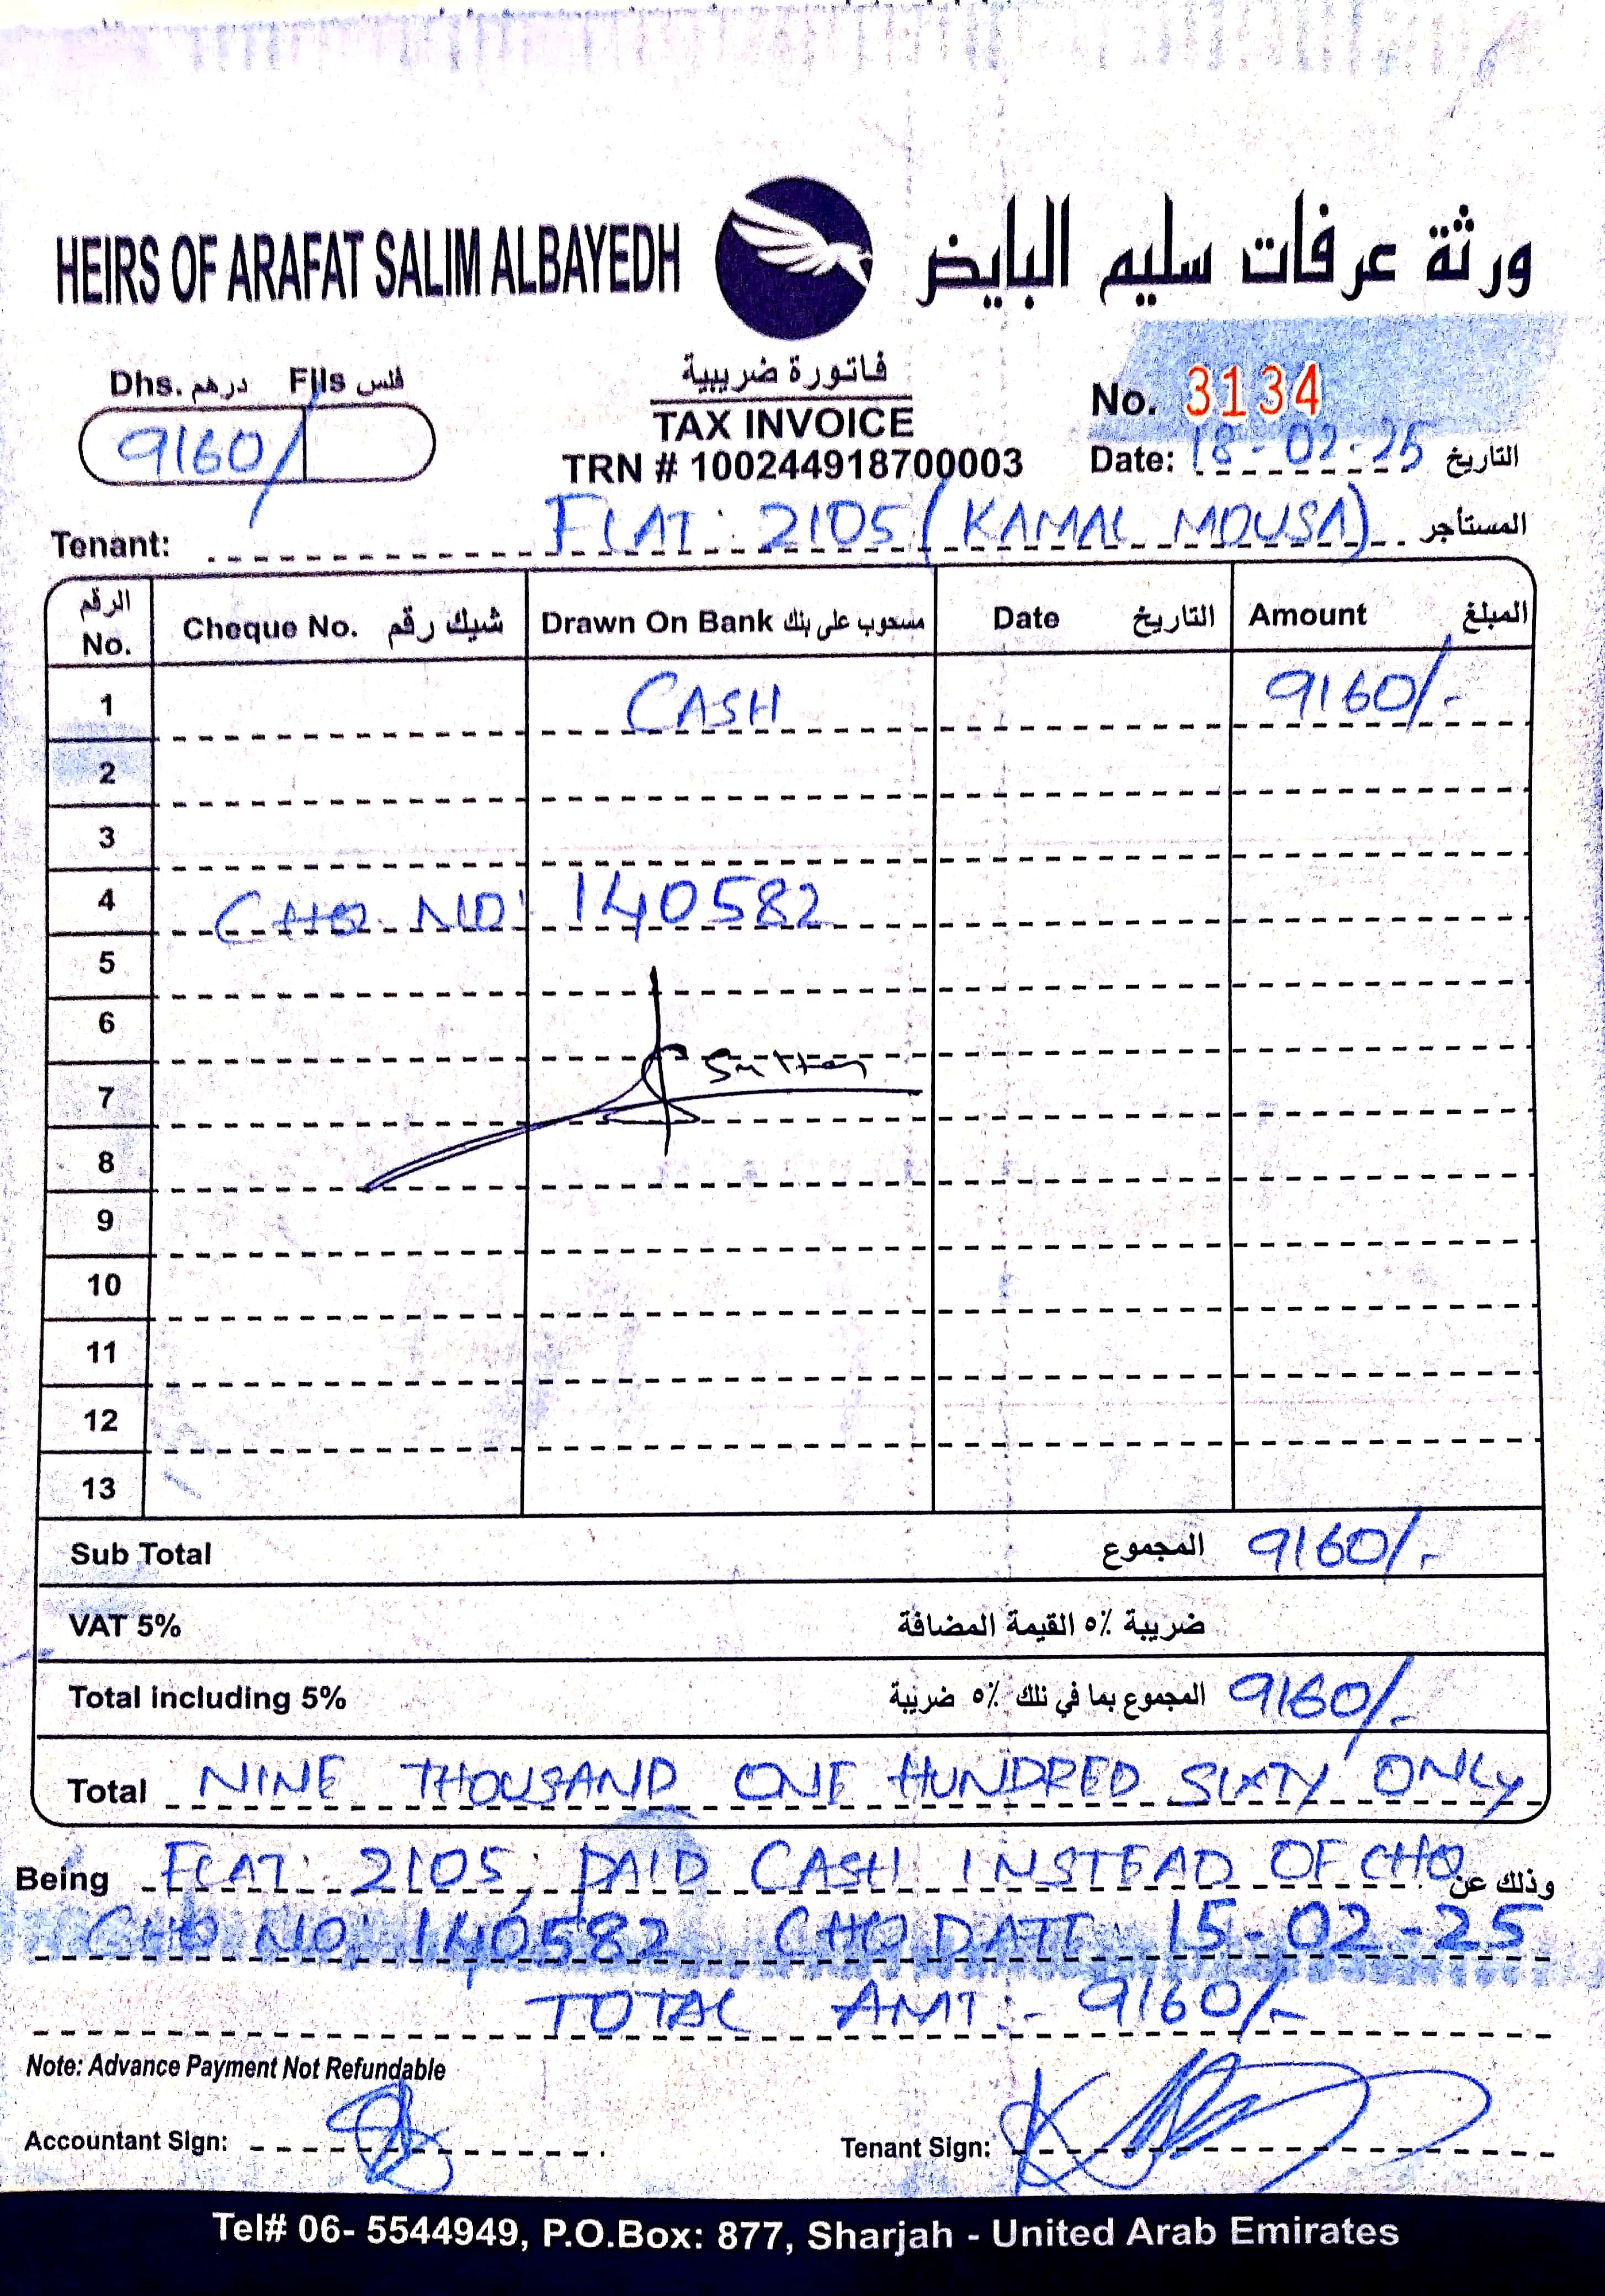 HEIRS OF ARAFAT SALIM ALBAYEDH ورثة عرفات سليم البايض
Dhs. درهم Fils فلس
9160/
فاتورة ضريبية
TAX INVOICE
TRN # 100244918700003
No. 3134
Date: 18-02-25 التاريخ
Tenant: FLAT: 2105 (KAMAL MOUSA) المستأجر
الرقم No. Cheque No. شيك رقم Drawn On Bank مسحوب على بنك Date التاريخ Amount المبلغ
1 CASH 9160/-
2
3
4 CHQ NO: 140582
5
6
7
8
9
10
11
12
13
Sub Total المجموع 9160/-
VAT 5% ضريبة ٥٪ القيمة المضافة
Total including 5% المجموع بما في ذلك ٥٪ ضريبة 9160/-
Total NINE THOUSAND ONE HUNDRED SIXTY ONLY
Being FLAT: 2105, PAID CASH INSTEAD OF CHQ وذلك عن
CHQ NO: 140582 CHQ DATE: 15-02-25
TOTAL AMT:- 9160/-
Note: Advance Payment Not Refundable
Accountant Sign:
Tenant Sign:
Tel# 06- 5544949, P.O.Box: 877, Sharjah - United Arab Emirates